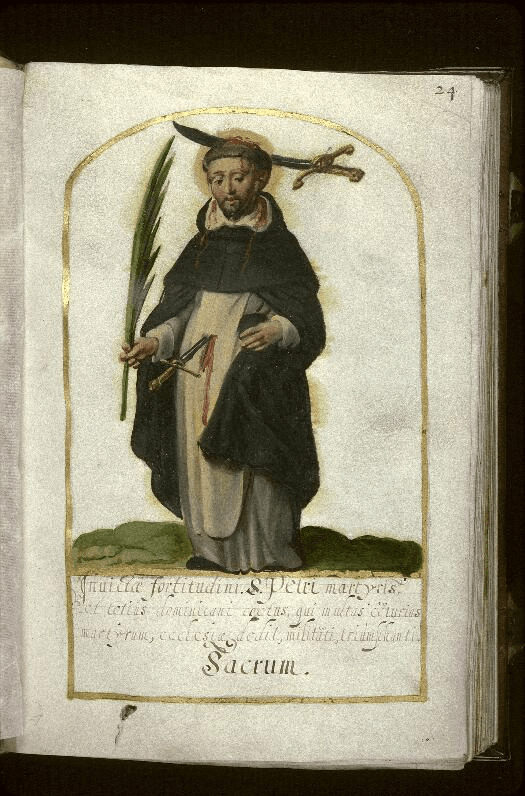 24
Inuictæ fortitudini. S. Petri martyris.
et totius dominicani cœtus, qui multas
martyrum, ecclesiæ dedit, militāti, triumphanti.
Sacrum.